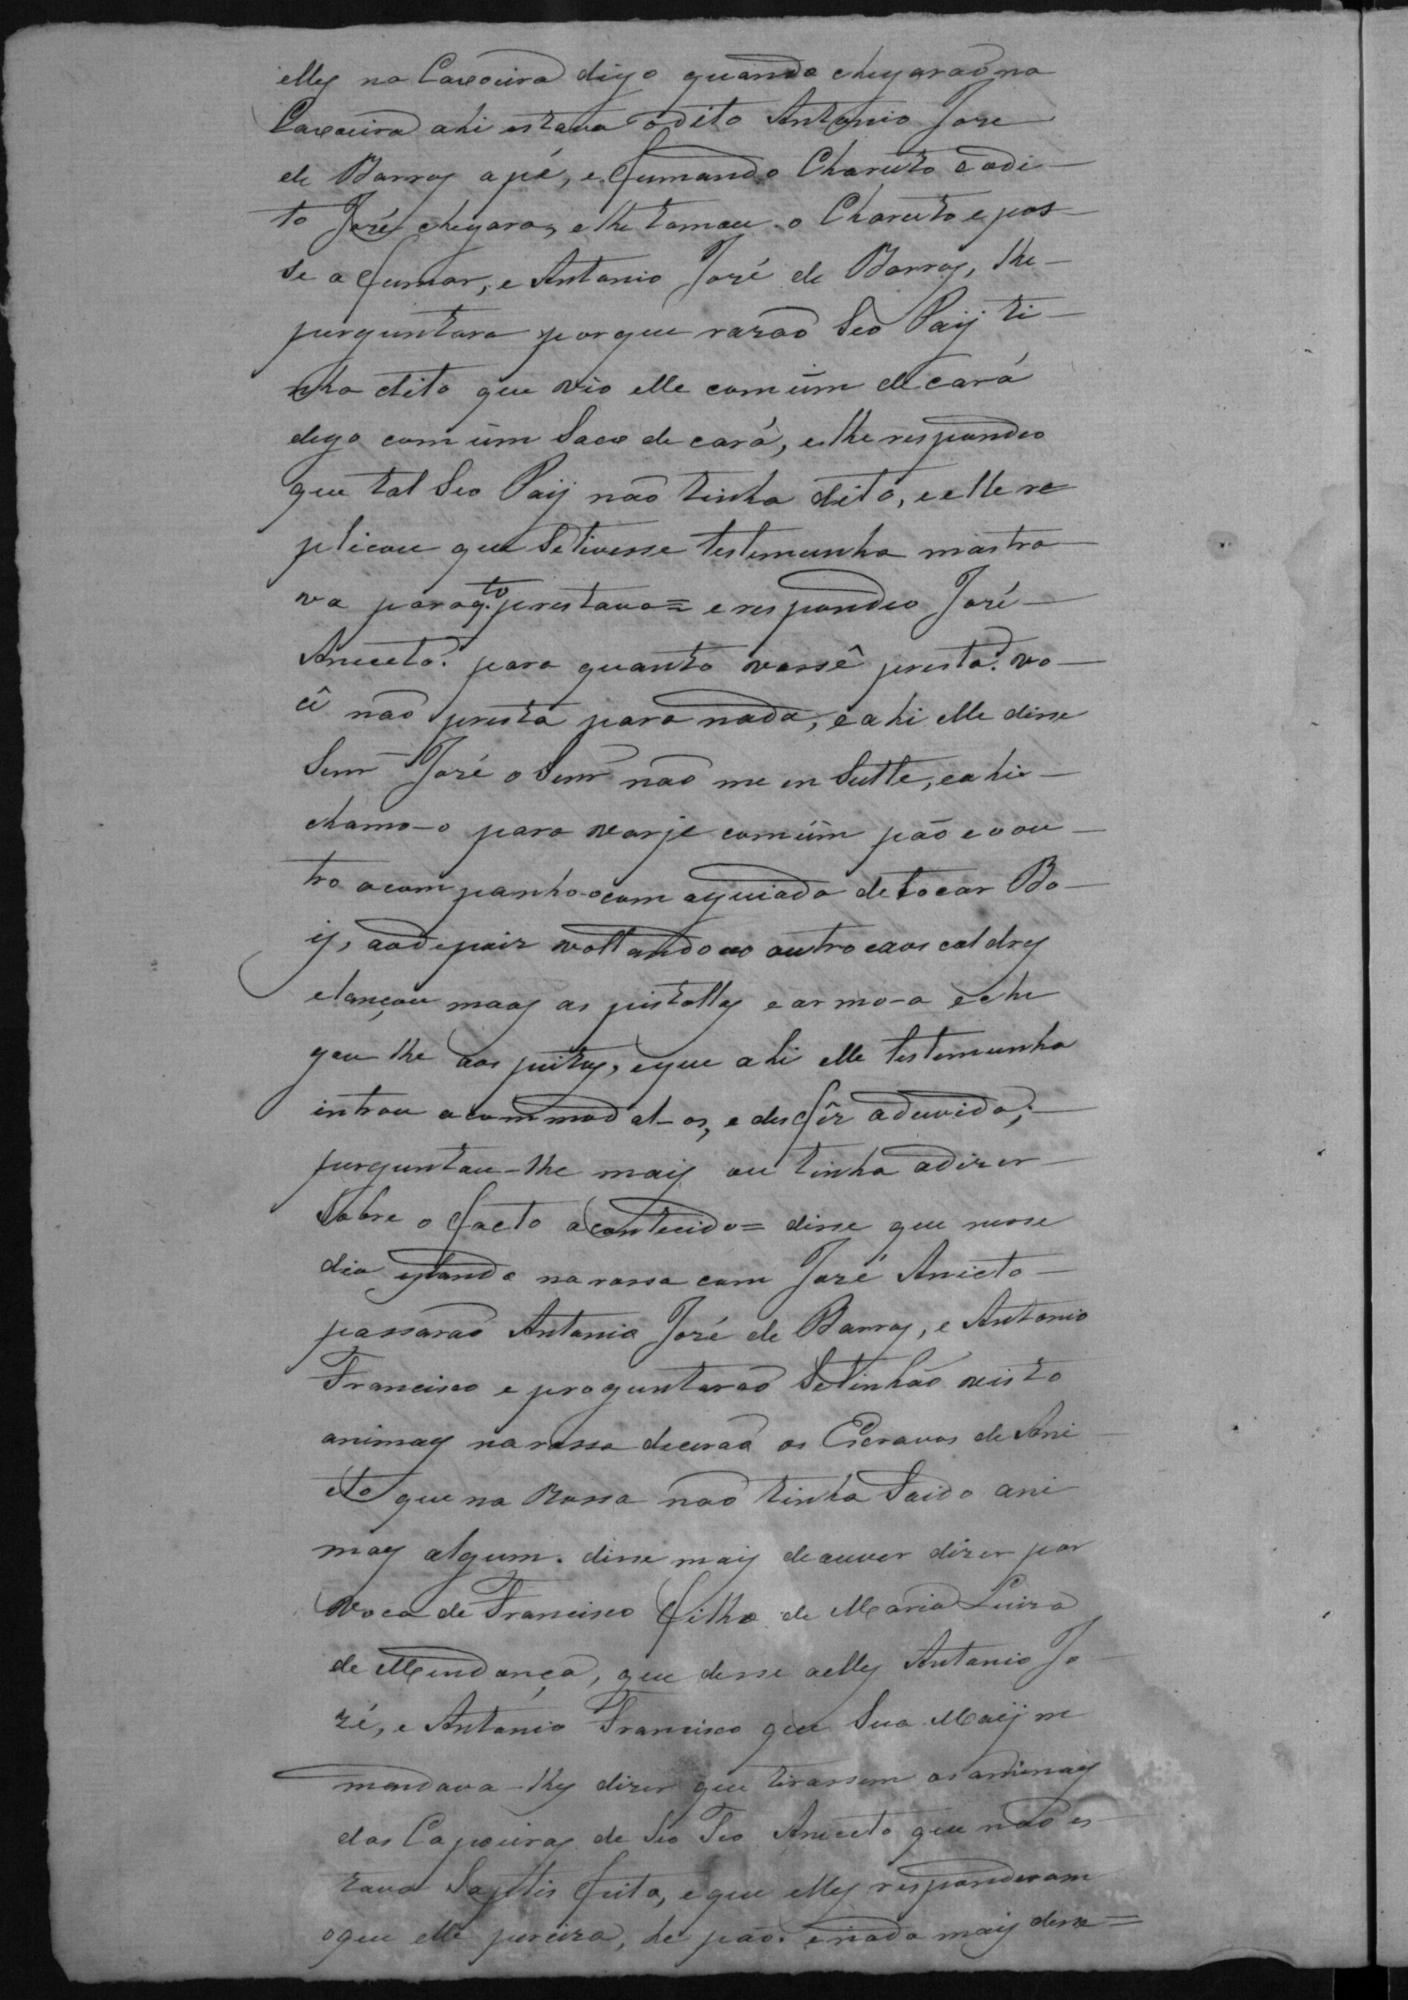 elles na Caxoeira digo quando chegaraõ na
Caxoeira ahi estava o dito Antonio Jose
de Barros apé, e fumando Charuto e o di-
to José chegara, e lhe tomou o Charuto e pos-
se a fumar, e Antonio José de Barros, lhe-
purguntara porque razaõ Seo Paij ti-
nha dito que vio elle com um de cará
digo com um Saco de cará, e lhe respondeo
que tal Seo Paij naõ tinha dito, e elle re
plicou que Setivesse testemunha mostra-
va para q.to prestava= e respondeo José-
Aniceto. para quanto vossê presta. vo-
cê naõ presta para nada, e ahi elle disse
Senr José o Senr naõ me en Sulte, e ahi-
chamo-o para varje com um páo e o ou-
tro acompanho-o com aguiada de tocar Bo-
ij, aodepoir voltando ao outro caos coldres
e lançou maos as pistollas e armo-a e che
gou lhe aos puitos, e que ahi elle testemunha
introu acommodal-os, e desfêz a duvida;-
purguntou-lhe mais ou tinha adizer-
Sobre o facto acontecido= disse que nesse
dia estando na rossa com José Aniceto-
passaraõ Antonio José de Barros, e Antonio
Francisco e proguntaraõ Setinhaõ visto
animaes na rossa diceraõ os Escravos de Ani-
ceto que na Rossa naõ tinha Saido ani
maes algum. disse mais de ouver dizer por
voca de Francisco filho de Maria Luiza
de Mendonça, que desse aelles Antonio Jo-
zé, e Antonio Francisco que Sua Maij me
mandava-lhes dizer que tirassem os animaes
das Capoeiras de Seo Teo Aniceto que naõ es
tava feito, e que elles responderam
oque elle , he páo. e nada mais disse=